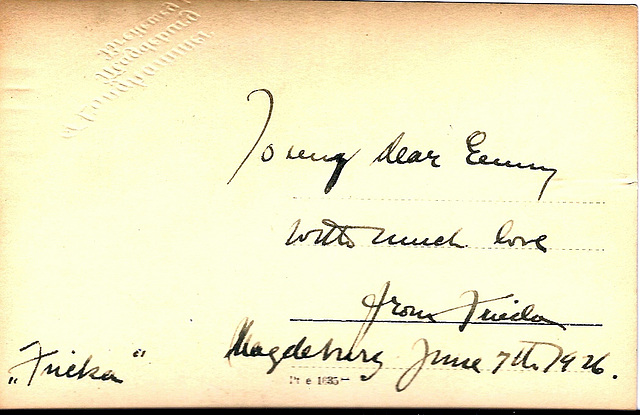 To my dear Emmy
with much love
from Frieda
Magdeburg June 7th. 1926.
„Fricka“